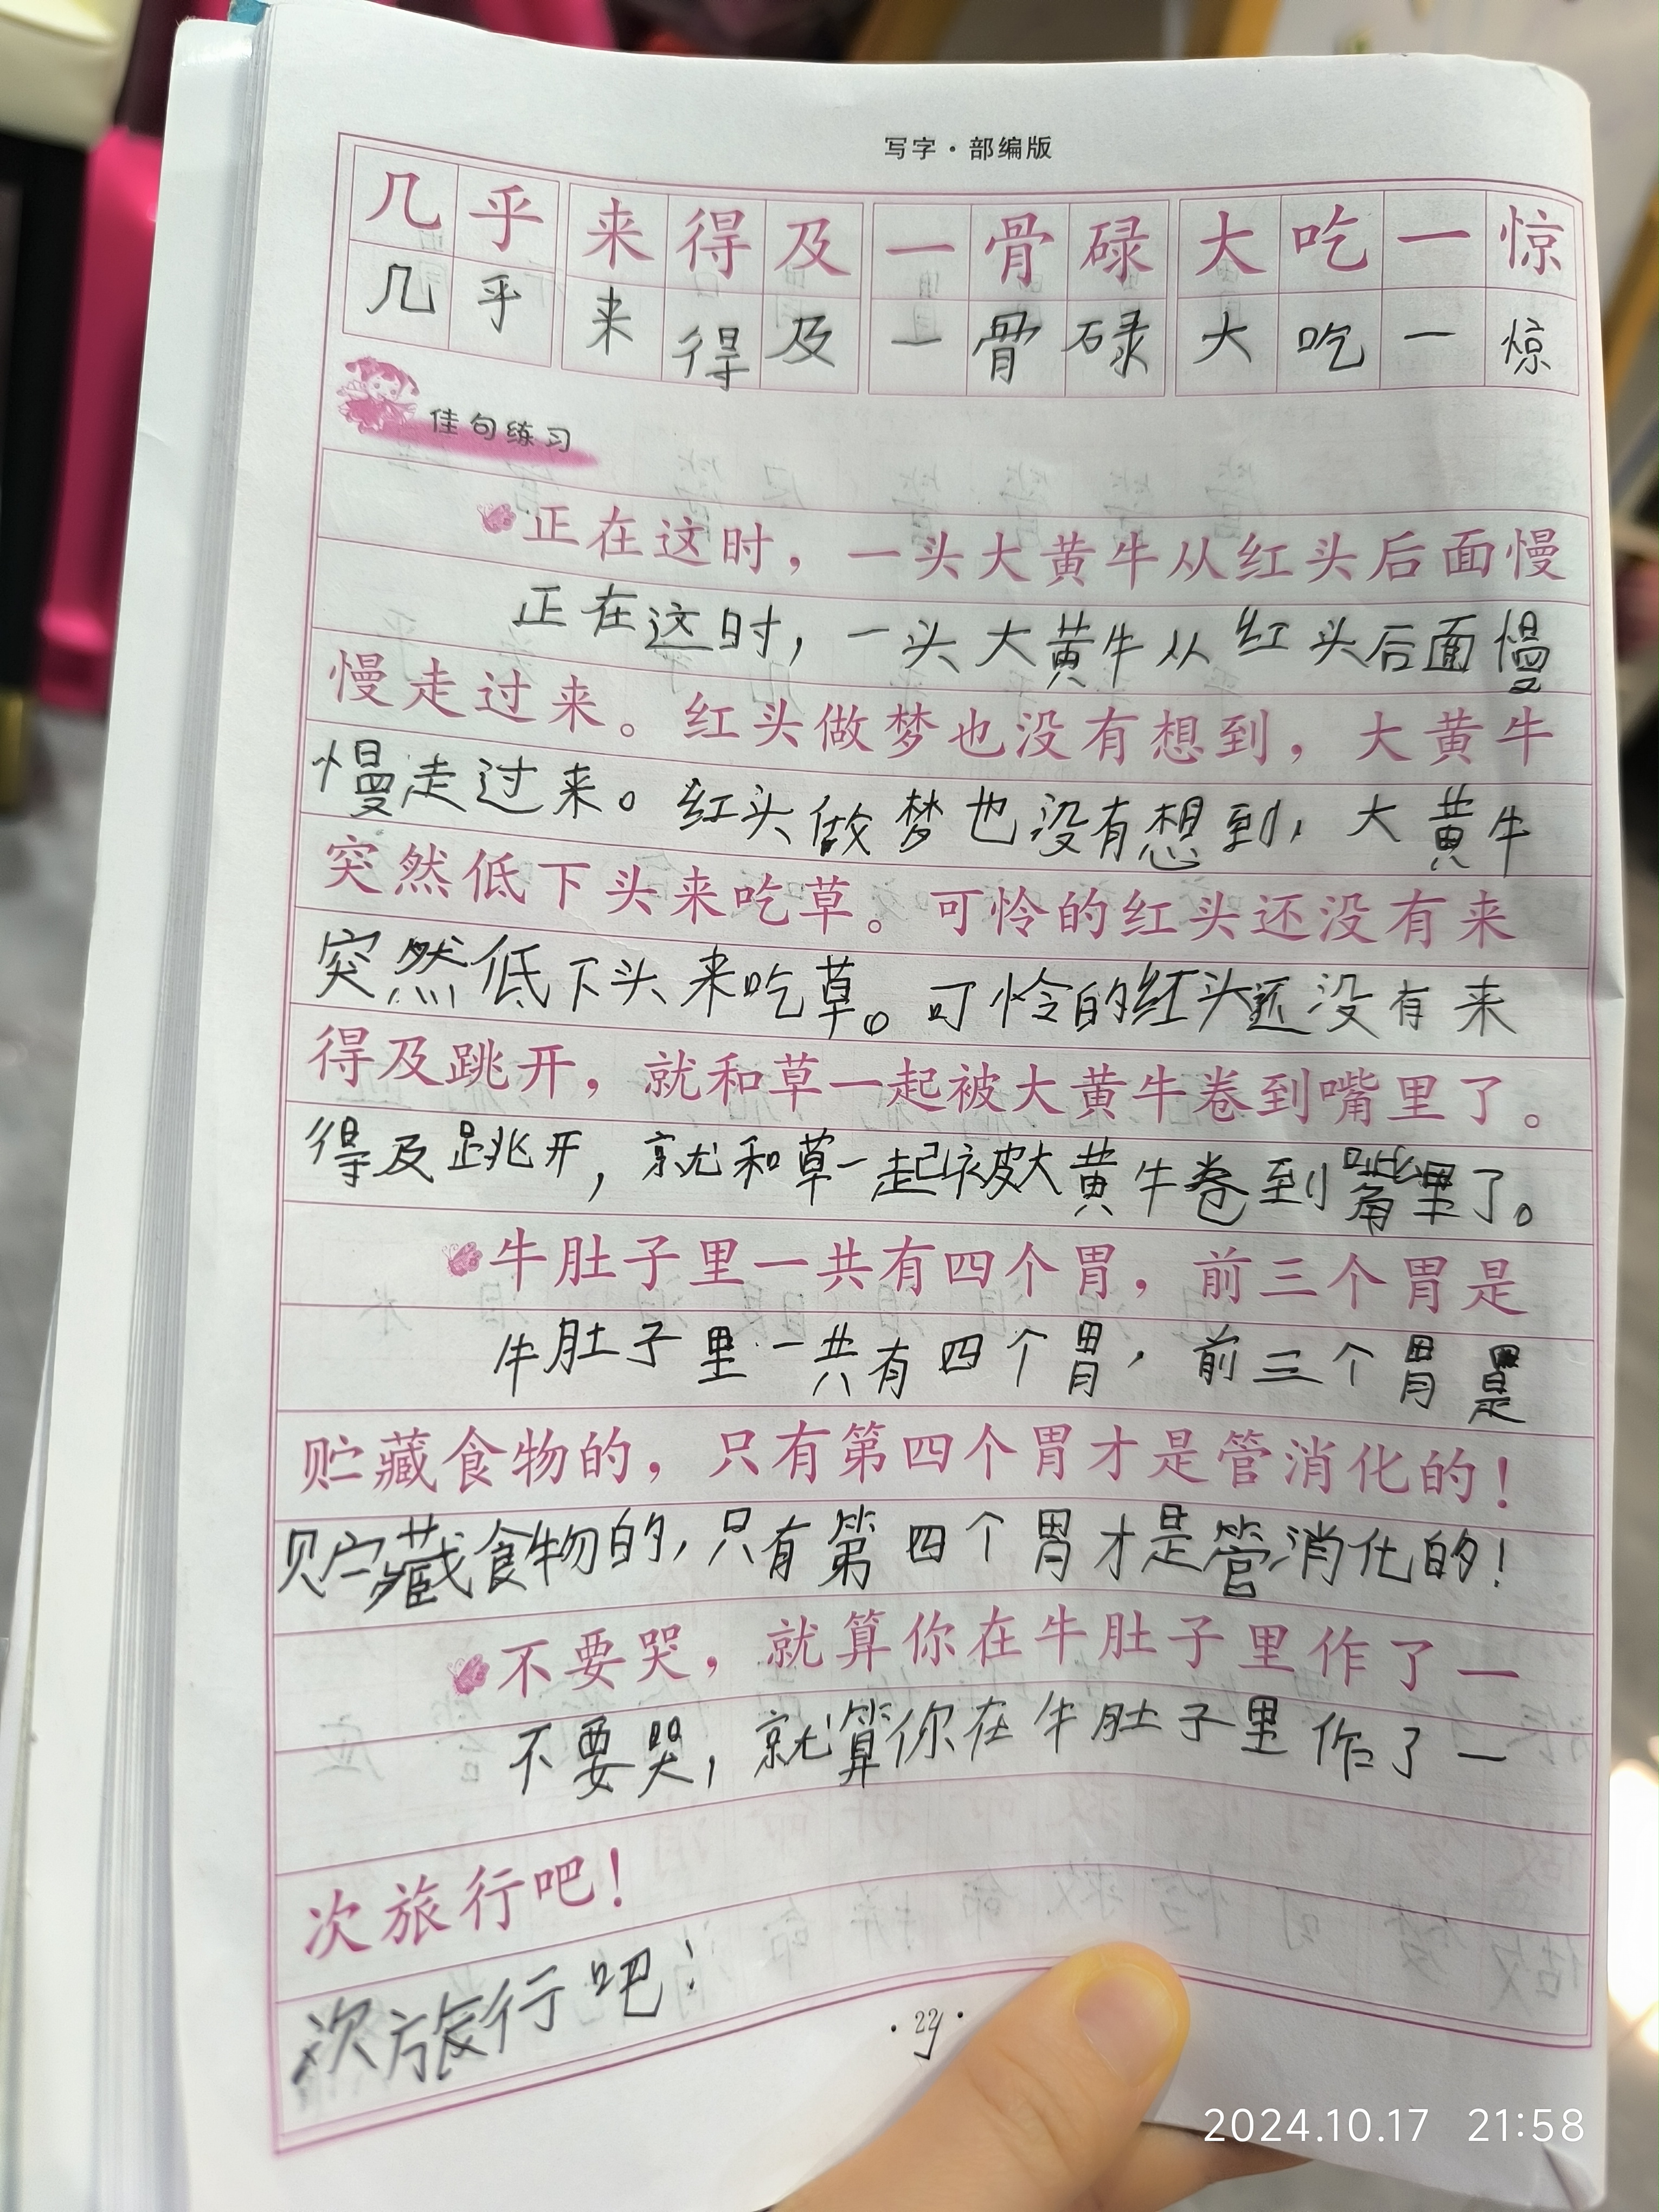 写字·部编版
几乎 来得及 一骨碌 大吃一惊
几乎 来得及 一骨碌 大吃一惊
佳句练习
正在这时，一头大黄牛从红头后面慢
正在这时，一头大黄牛从红头后面慢
慢走过来。红头做梦也没有想到，大黄牛
慢走过来。红头做梦也没有想到，大黄牛
突然低下头来吃草。可怜的红头还没有来
突然低下头来吃草。可怜的红头还没有来
得及跳开，就和草一起被大黄牛卷到嘴里了。
得及跳开，就和草一起被大黄牛卷到嘴里了。
牛肚子里一共有四个胃，前三个胃是
牛肚子里一共有四个胃，前三个胃是
贮藏食物的，只有第四个胃才是管消化的！
贮藏食物的，只有第四个胃才是管消化的！
不要哭，就算你在牛肚子里作了一
不要哭，就算你在牛肚子里作了一
次旅行吧！
次旅行吧！
·22·
2024.10.17 21:58